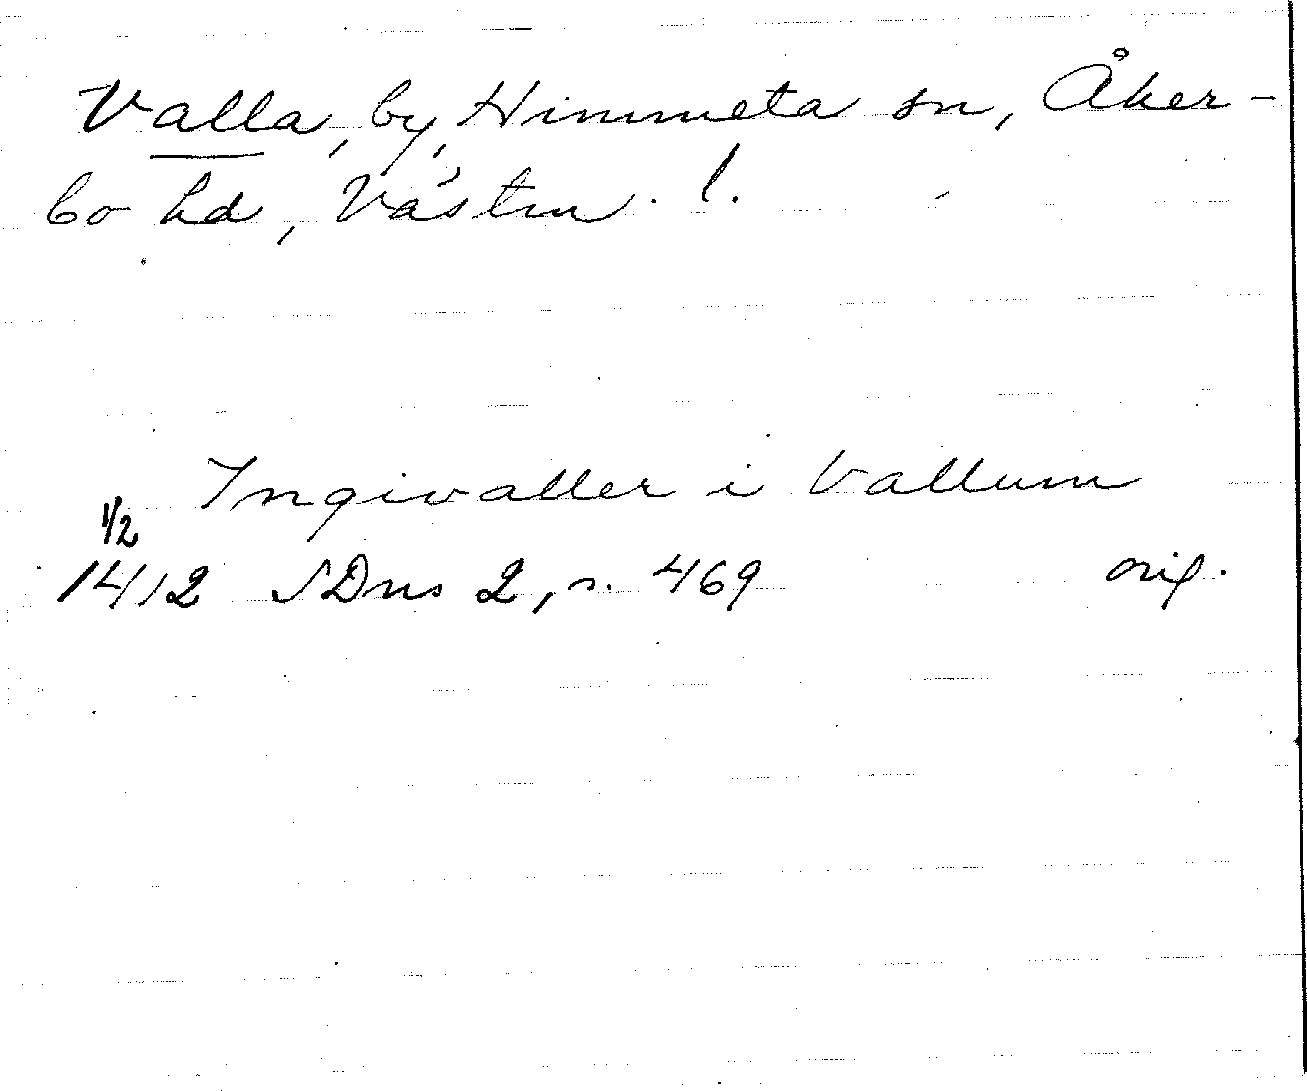 Valla, by, Himmeta sn, Åker-
bo hd, Västm. l.
Ingivaller i Vallum
1/2
1412 SDns 2, s. 469 orig.